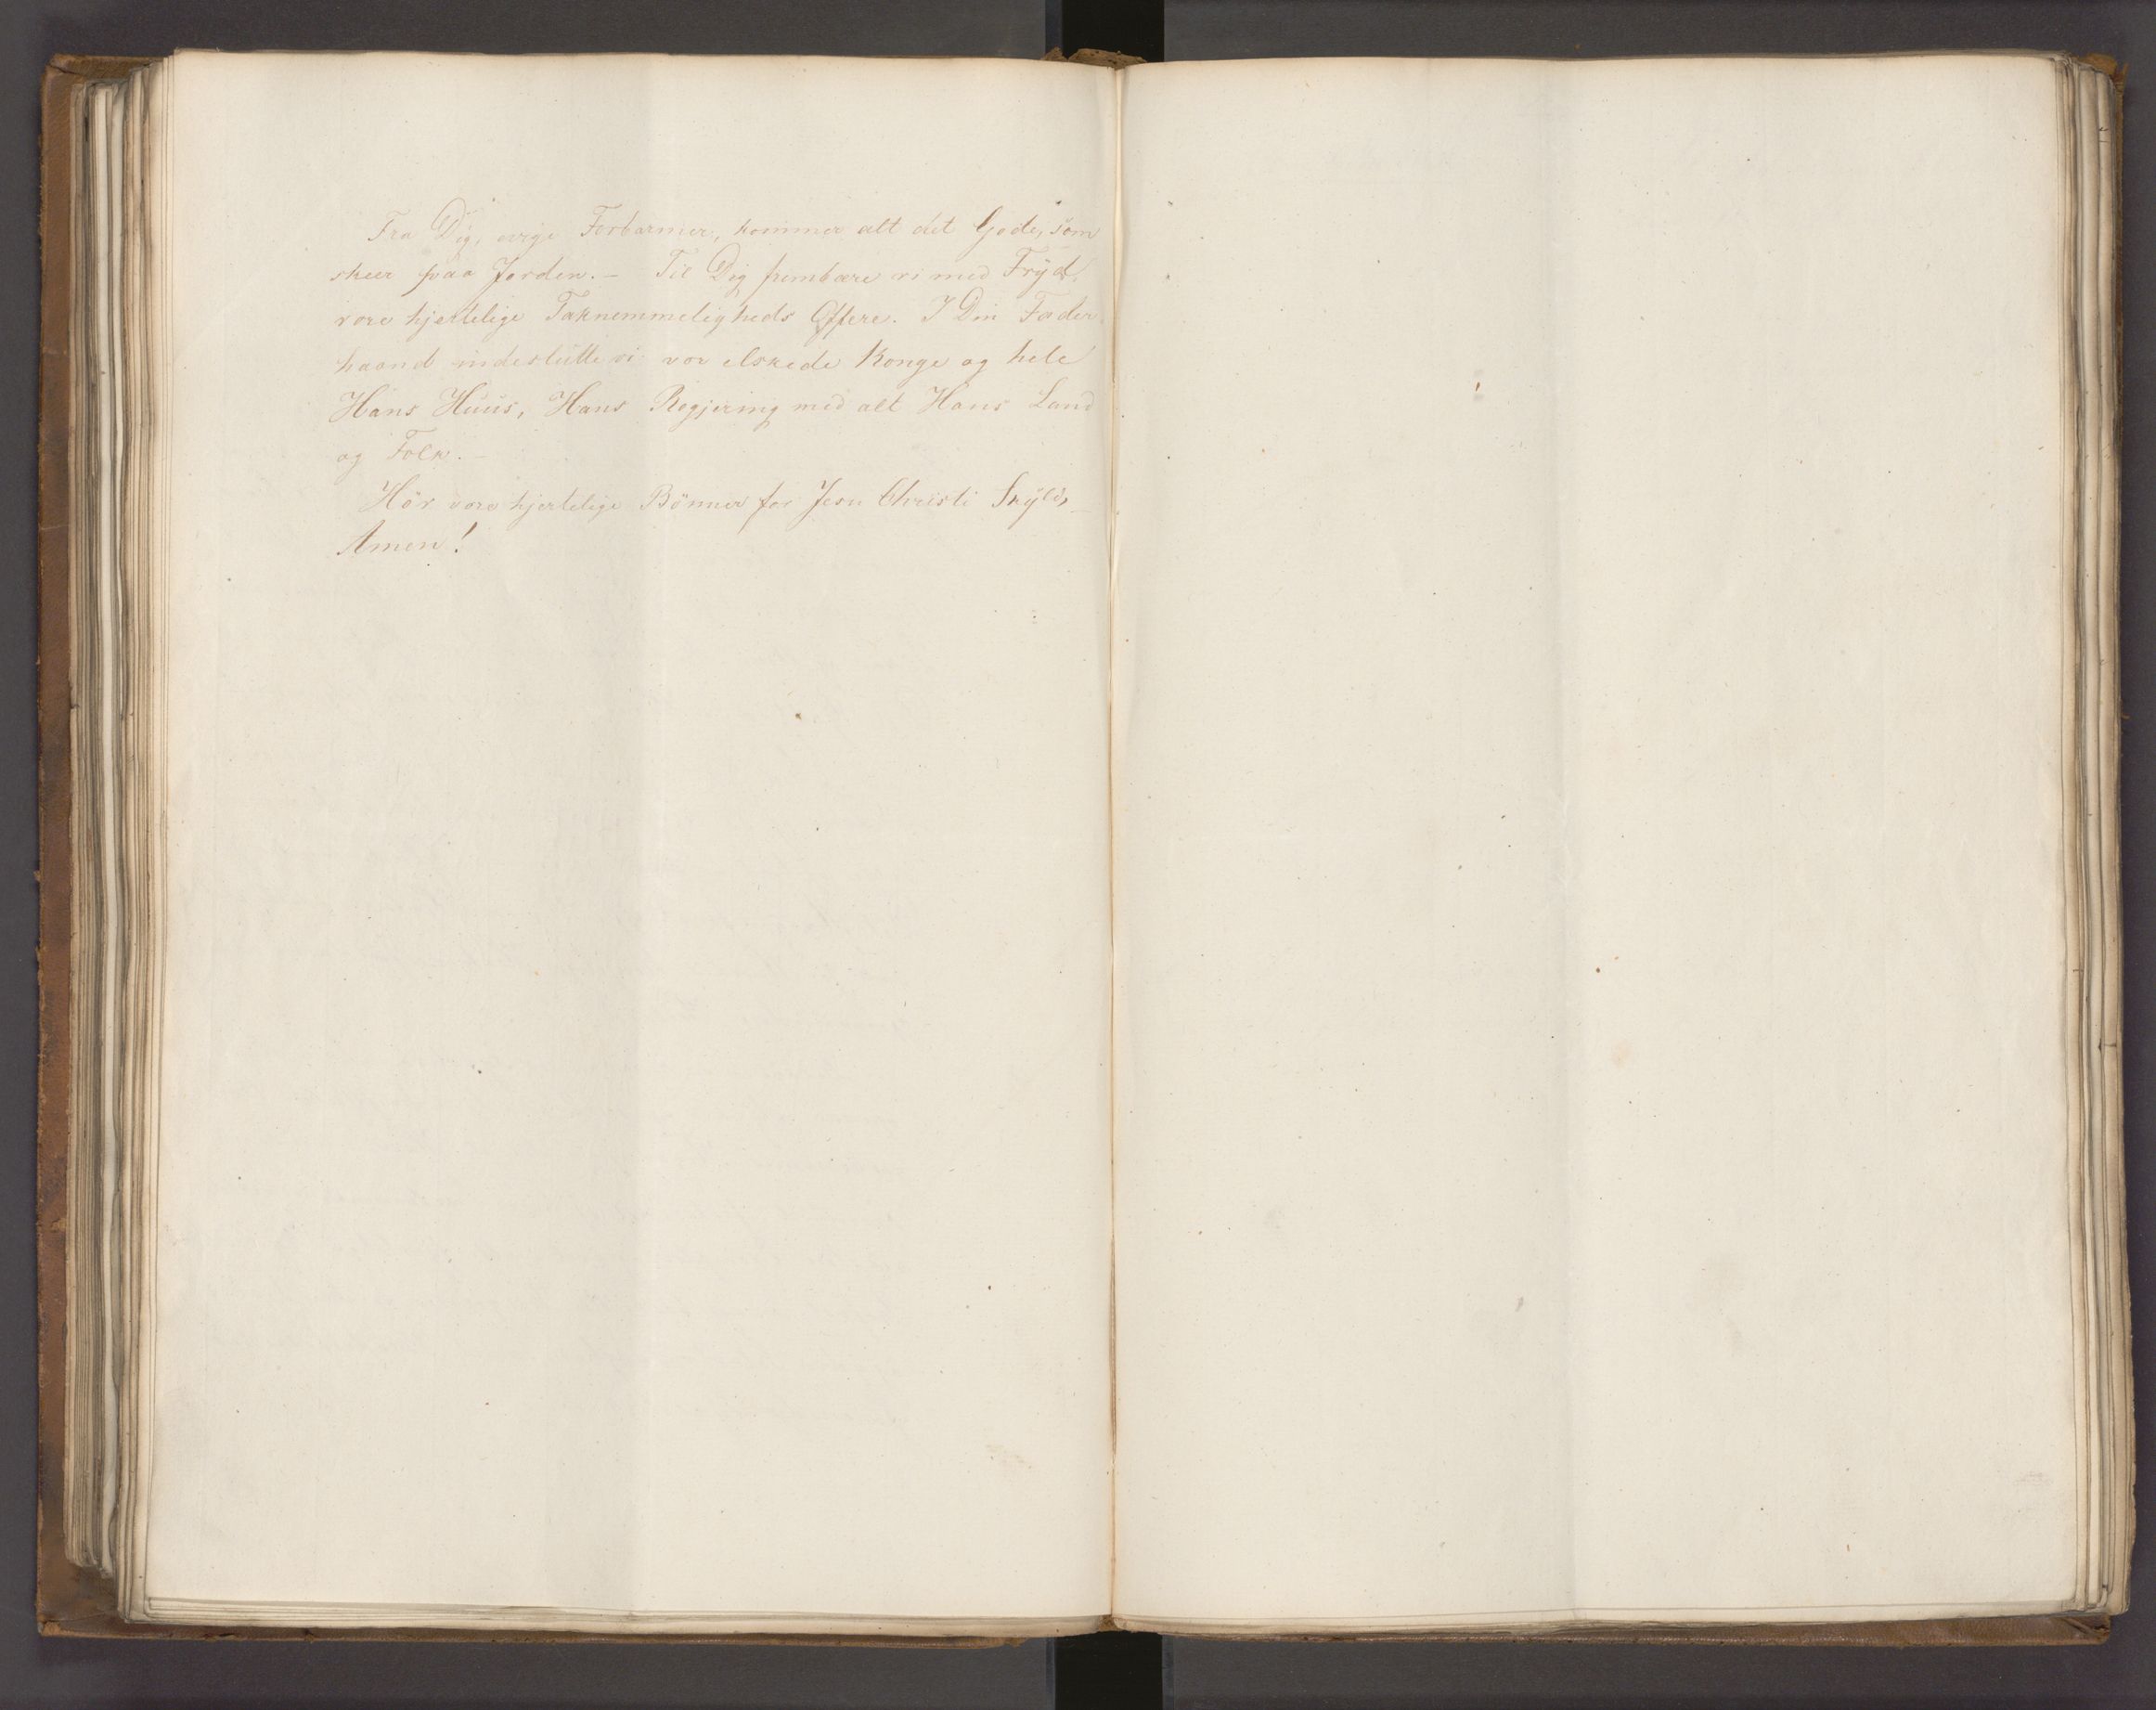 Fra Dig, evige Forbarmer, kommer alt det Gode, som
skeer paa Jorden. – Til Dig frembære vi med Fryd
vore hjertelige Taknemmeligheds Offere. I Din Fader
haand indeslutte vi vor elskede Konge og hele
Hans Huus, Hans Regjering med alt Hans Land
og Folk. –
Hör vore hjertelige Bönner for Jesu Christi Skyld,
Amen!